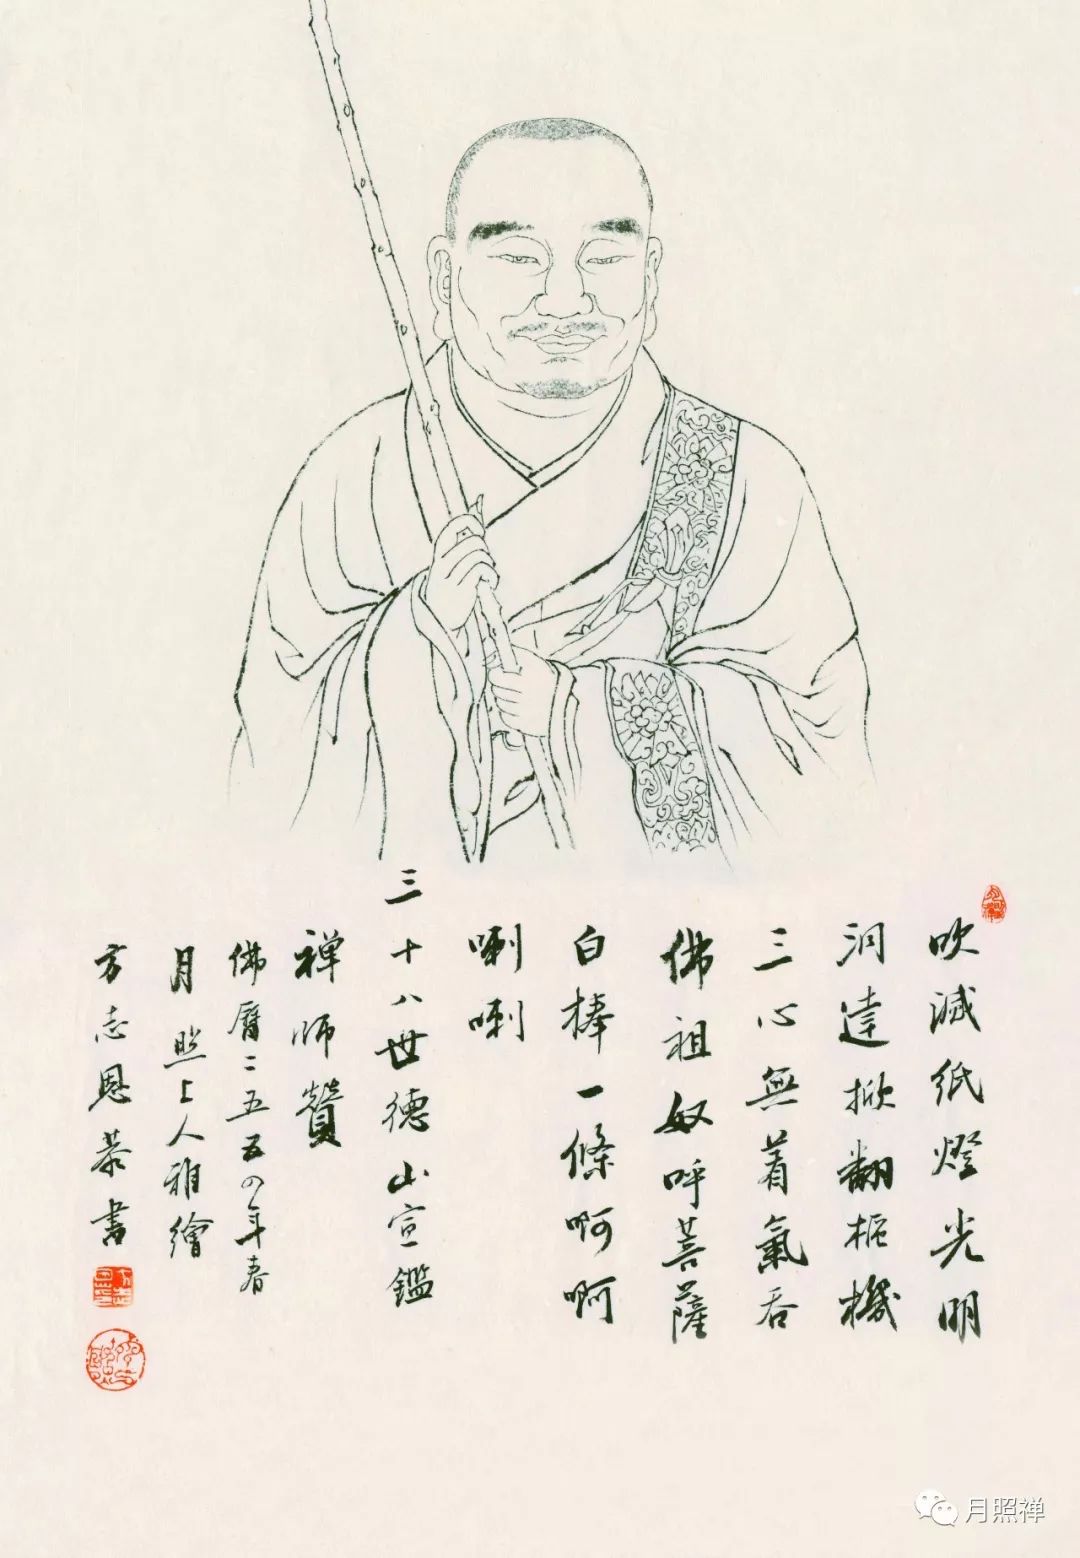 吹滅紙燈光明
洞達掀翻柩機
三心無着氣吞
佛祖奴呼菩薩
白棒一條啊啊
喇喇
三十八世德山宣鑑
禅师贊
佛曆二五五四年春
月照上人雅繪
方志恩恭書
月照禅